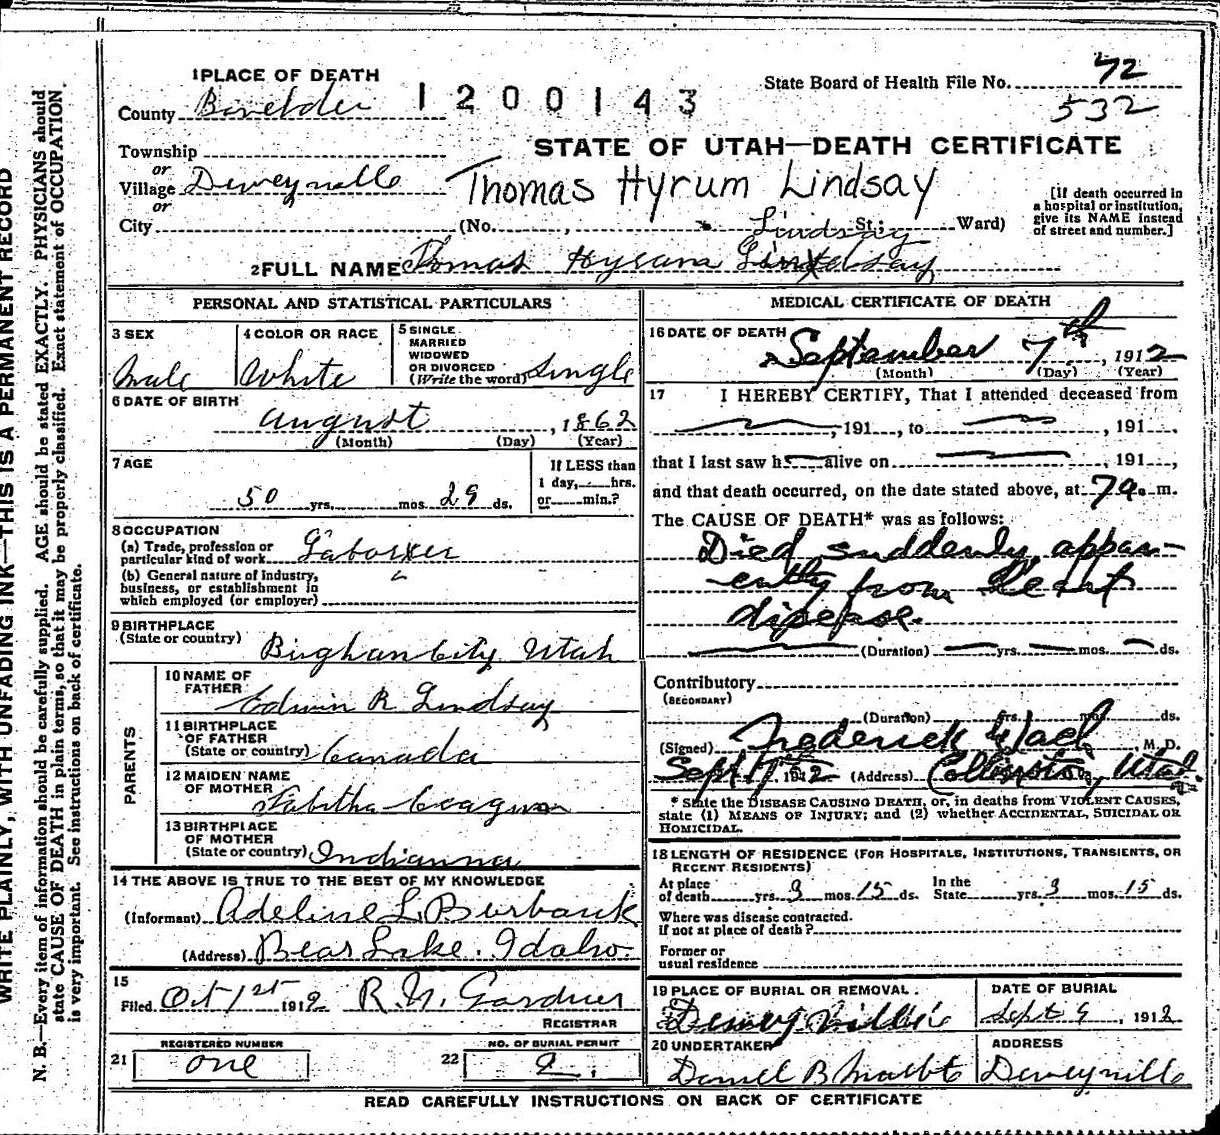 WRITE PLAINLY, WITH UNFADING INK—THIS IS A PERMANENT RECORD
N. B.—Every item of information should be carefully supplied. AGE should be stated EXACTLY. PHYSICIANS should
state CAUSE OF DEATH in plain terms, so that it may be properly classified. Exact statement of OCCUPATION
is very important. See instructions on back of certificate.
1 PLACE OF DEATH
County Boxelder
1200143
State Board of Health File No. 42
532
STATE OF UTAH—DEATH CERTIFICATE
Township
or
Village Deweyville
Thomas Hyrum Lindsay
or
City (No. , St.; Ward)
Lindsay
[If death occurred in
a hospital or institution,
give its NAME instead
of street and number.]
2 FULL NAME Thomas Hyrum
PERSONAL AND STATISTICAL PARTICULARS
3 SEX
Male
4 COLOR OR RACE
White
5 SINGLE
MARRIED
WIDOWED
OR DIVORCED
(Write the word) Single
6 DATE OF BIRTH
August , 1862
(Month) (Day) (Year)
7 AGE
50 yrs. mos. 29 ds.
If LESS than
1 day, hrs.
or min.?
8 OCCUPATION
(a) Trade, profession or
particular kind of work Laborer
(b) General nature of industry,
business, or establishment in
which employed (or employer)
9 BIRTHPLACE
(State or country)
Brigham City Utah
PARENTS
10 NAME OF
FATHER
Edwin R Lindsay
11 BIRTHPLACE
OF FATHER
(State or country) Canada
12 MAIDEN NAME
OF MOTHER
Tabitha Cragun
13 BIRTHPLACE
OF MOTHER
(State or country) Indianna
14 THE ABOVE IS TRUE TO THE BEST OF MY KNOWLEDGE
(Informant) Adeline L. Burbank
(Address) Bear Lake. Idaho.
15
Filed Oct 1st 1912 R. N. Gardner
REGISTRAR
REGISTERED NUMBER
21 one
NO. OF BURIAL PERMIT
22
MEDICAL CERTIFICATE OF DEATH
16 DATE OF DEATH
September 7th , 1912
(Month) (Day) (Year)
17 I HEREBY CERTIFY, That I attended deceased from
, 191 , to , 191 ,
that I last saw h alive on , 191 ,
and that death occurred, on the date stated above, at 7 a. m.
The CAUSE OF DEATH* was as follows:
Died suddenly appar-
ently from Heart
disease.
(Duration) yrs. mos. ds.
Contributory
(SECONDARY)
(Duration) yrs. mos. ds.
(Signed) Frederick , M. D.
Sept 7 1912 (Address) Collinston, Utah
* State the DISEASE CAUSING DEATH, or, in deaths from VIOLENT CAUSES,
state (1) MEANS OF INJURY; and (2) whether ACCIDENTAL, SUICIDAL OR
HOMICIDAL.
18 LENGTH OF RESIDENCE (FOR HOSPITALS, INSTITUTIONS, TRANSIENTS, OR
RECENT RESIDENTS)
At place
of death yrs. 3 mos. 15 ds.
In the
State yrs. 3 mos. 15 ds.
Where was disease contracted.
If not at place of death?
Former or
usual residence
19 PLACE OF BURIAL OR REMOVAL.
Deweyville
DATE OF BURIAL
Sept 9 , 1912
20 UNDERTAKER
ADDRESS
Deweyville
READ CAREFULLY INSTRUCTIONS ON BACK OF CERTIFICATE